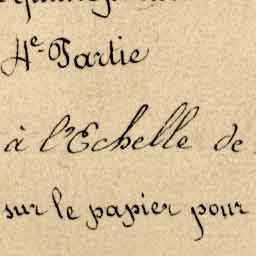 4e Partie
à l'Echelle de
sur le papier pour